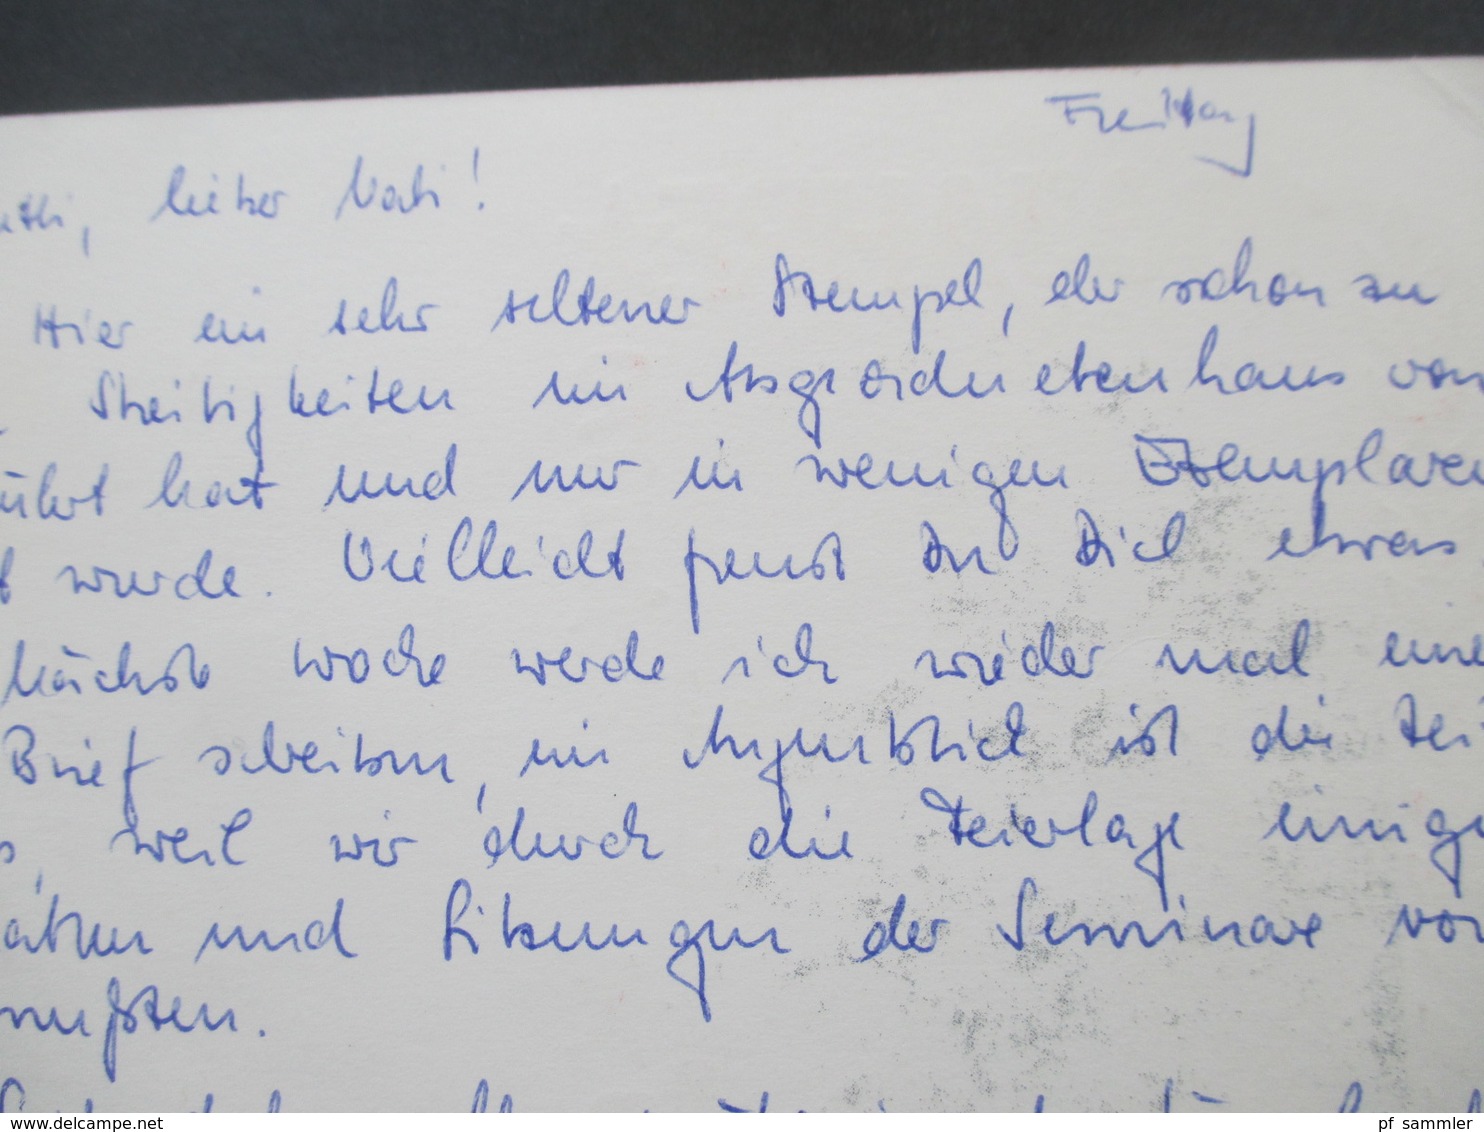 Freitag
utti, lieber Vati!
Hier ein sehr seltener Stempel, der schon zu
Streitigkeiten im Abgeordnetenhaus von
ührt hat und nur in wenigen Exemplaren
t wurde. Vielleicht freust Du Dich etwas
Nächste Woche werde ich wieder mal eine
Brief schreiben, im Augenblick ist die Zei
s, weil wir durch die Feiertage einige
und Sitzungen der Seminare vor
mußten.
www.delcampe.net
pf_sammler